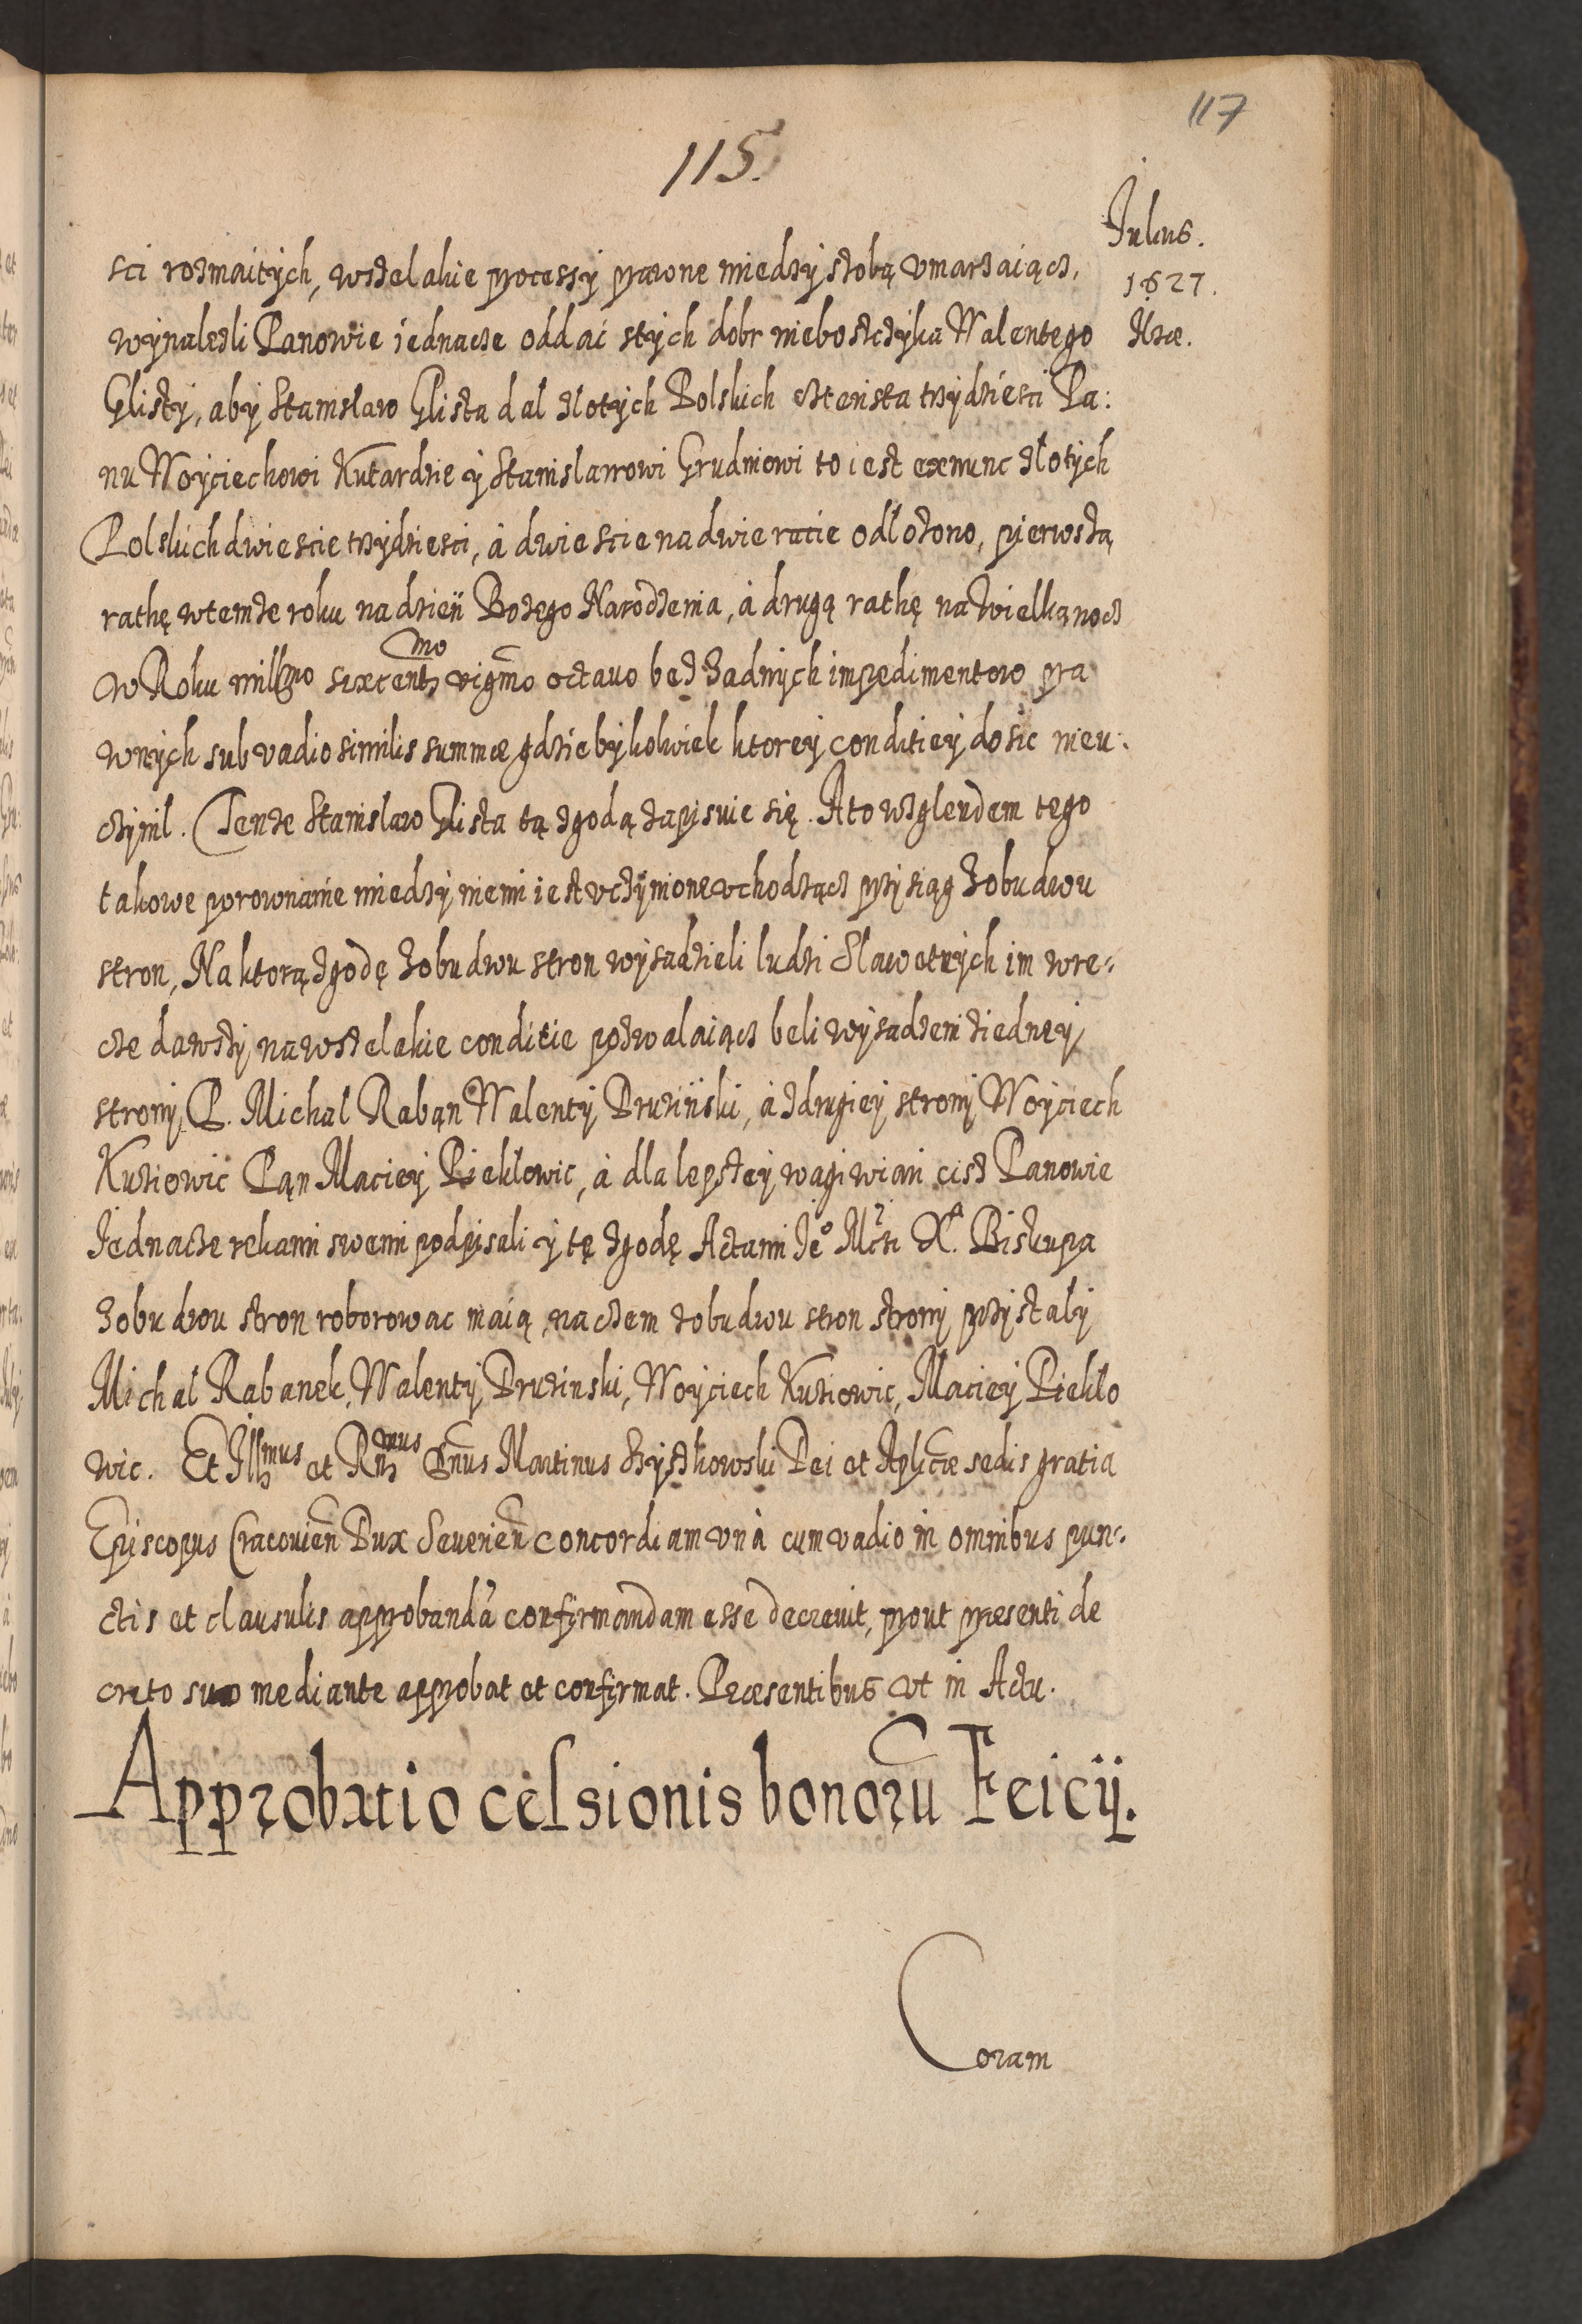 117
115.
Julius.
1627.
sci rozmaitych, wszelakie processy prawne miedzy sobą vmarzaiącz,
wynalezli Panowie iednacze oddać stych dobr nieboszczyka Walentego
Glisty, aby Stanislaw Glista dal zlotych Polskich czterista trzydziesci Pa:
nu Woyciechowi Kutardzie y Stanislawowi Grudniowi to iest exnunc złotych
Polskich dwiescie trzydziesci, à dwiescie na dwie racie odłożono, pierwszą
rathę wtemże roku na dzień Bożego Narodzenia, à drugą rathę na Wielkąnocz
w Roku millmo sexcentmo vigmo octauo bez żadnych impedimentow pra
wnych sub vadio similis summæ gdziebykolwiek ktorey conditiey dosic nieu:
czynil. Tenże Stanislaw Glista tą zgodą zapisuie się. A to wzglendem tego
takowe porownanie miedzy niemi iest vczynione vchodzącz przysiąg zobudwu
stron, Na ktorą zgodę zobudwu stron wysadzieli ludzi Slawetnych im wre-
cze dawszy, na wszelakie conditie pozwalaiącz beli wysadzeni ziedney
strony, P. Michal Rabąn Walenty Druziński, à zdrugiey strony Woyciech
Kuziowic Pąn Maciey Piekłowic, à dla lepszey wagi wiani cisz Panowie
Jednacze rekami swemi podpisali y tę zgodę Actami Jeo Mczi Xa. Biskupa
zobudwu stron roborowac maią, na czem zobudwu stron strony przystaly
Michal Rabanek, Walenty Druzinski, Woyciech Kuziowic, Maciey Piekło
wic. Et Illmus et Rndmus Dnus Martinus Szyszkowski Dei et Aplicæ sedis gratia
Episcopus Cracouien Dux Seuerien concordiam vnà cum vadio in omnibus pun-
ctis et clausulis approbandã confirmandam esse decreuit, prout præsenti de
creto suo mediante approbat et confirmat. Præsentibus vt in Actu.
Approbatio cessionis bonorũ Feicij.
Coram